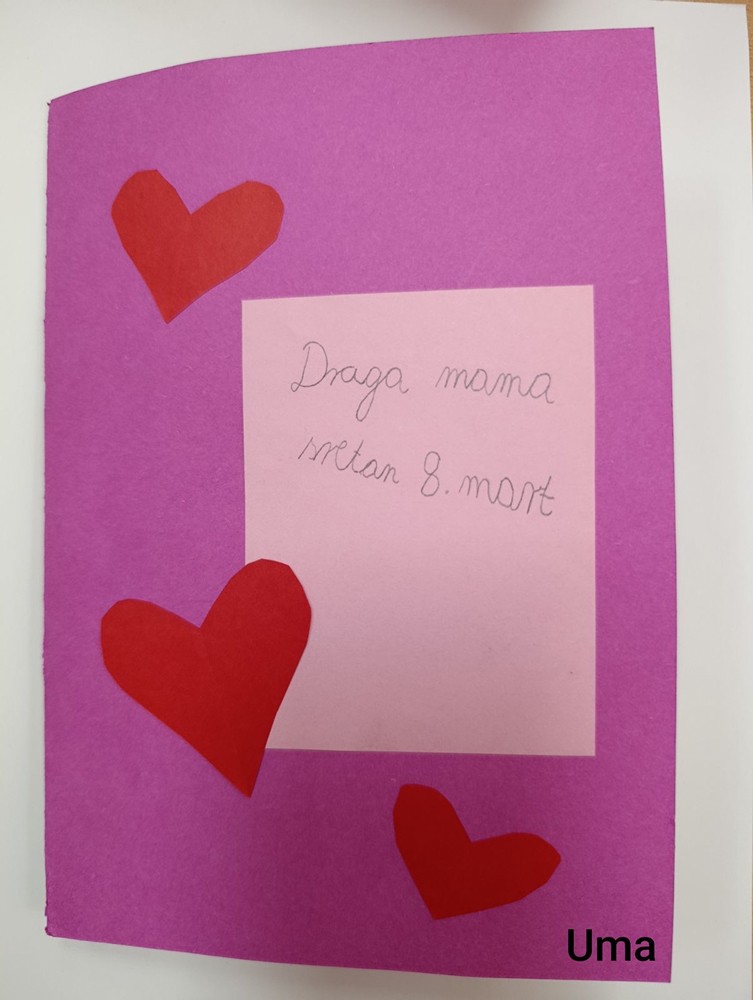 Draga mama
sretan 8. mart
Uma